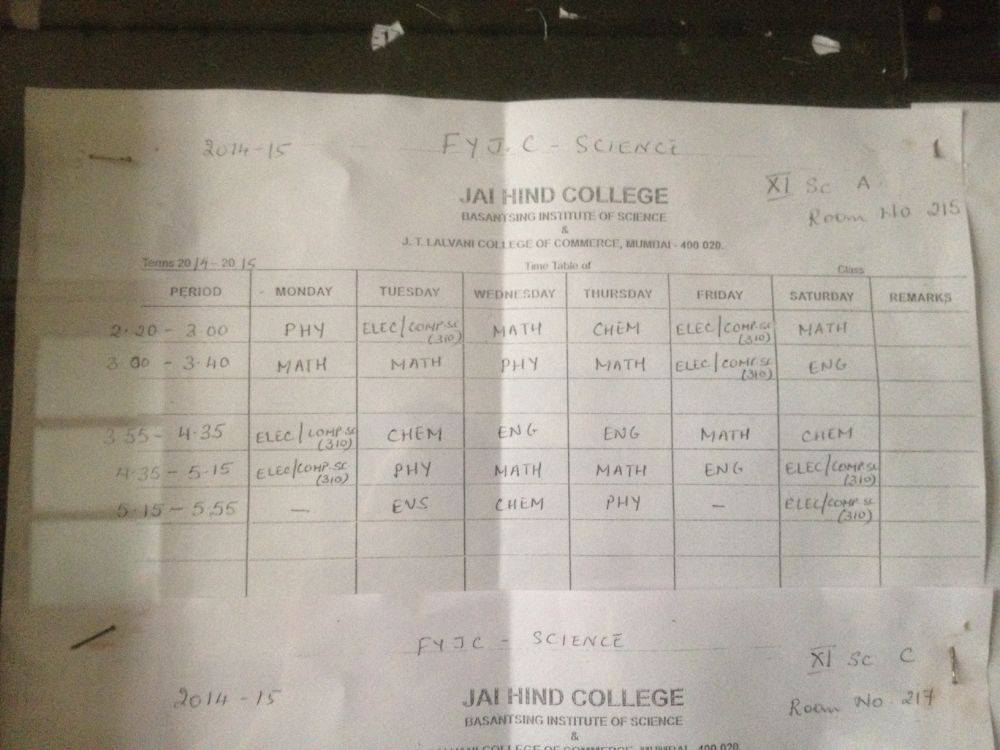 2014-15 FYJ.C - SCIENCE
XI Sc A
JAI HIND COLLEGE
Room No 215
BASANTSING INSTITUTE OF SCIENCE
&
J. T. LALVANI COLLEGE OF COMMERCE, MUMBAI - 400 020.
Terms 2014 - 2015 Time Table of Class
PERIOD MONDAY TUESDAY WEDNESDAY THURSDAY FRIDAY SATURDAY REMARKS
2.20 - 3.00 PHY ELEC/COMP.SC (310) MATH CHEM ELEC/COMP.SC (310) MATH
3.00 - 3.40 MATH MATH PHY MATH ELEC/COMP.SC (310) ENG
3.55 - 4.35 ELEC/COMP.SC (310) CHEM ENG ENG MATH CHEM
4.35 - 5.15 ELEC/COMP.SC (310) PHY MATH MATH ENG ELEC/COMP.SC (310)
5.15 - 5.55 — EVS CHEM PHY — ELEC/COMP.SC (310)
FYJC - SCIENCE
XI Sc C
2014-15 JAI HIND COLLEGE Room No 217
BASANTSING INSTITUTE OF SCIENCE
&
LALVANI COLLEGE OF COMMERCE, MUMBAI - 400 020.